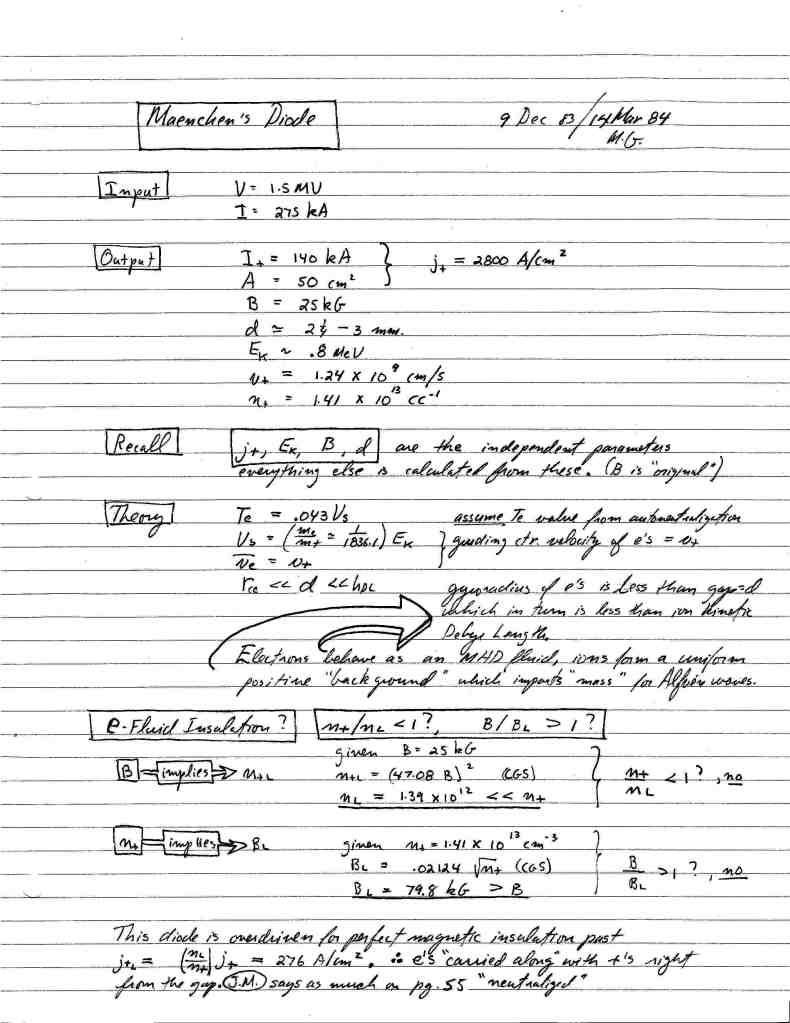 Maenchen's Diode
9 Dec 83/14 Mar 84
M.G.
Input V = 1.5 MV
I = 275 kA
Output I₊ = 140 kA } j₊ = 2800 A/cm²
A = 50 cm²
B = 25 kG
d ≃ 2½ - 3 mm.
E_K ~ .8 MeV
v₊ = 1.24 x 10⁹ cm/s
n₊ = 1.41 x 10¹³ cc⁻¹
Recall j₊, E_K, B, d are the independent parameters
everything else is calculated from these. (B is "original")
Theory Te = .043 Vs assume Te value from autoneutralization
Vs = (me/m₊ = 1/1836.1) E_K } guiding ctr. velocity of e's = v₊
v̄e = v₊
r_ce << d << h_DL gyroradius of e's is less than gap=d
which in turn is less than ion kinetic
Debye Length.
Electrons behave as an MHD fluid, ions form a uniform
positive "background" which imparts "mass" for Alfvén waves.
e-Fluid Insulation? n₊/n_L < 1?, B/B_L > 1?
given B = 25 kG
B implies n₊L n₊L = (47.08 B)² (CGS) } n₊/n_L < 1?, no
n_L = 1.39 x 10¹² << n₊
n₊ implies B_L given n₊ = 1.41 x 10¹³ cm⁻³
B_L = .02124 √n₊ (CGS) } B/B_L > 1?, no
B_L = 79.8 kG > B
This diode is overdriven for perfect magnetic insulation past
j₊L = (n_L/n₊) j₊ = 276 A/cm², ∴ e's "carried along" with +'s right
from the gap. J.M. says as much on pg. 55 "neutralized"